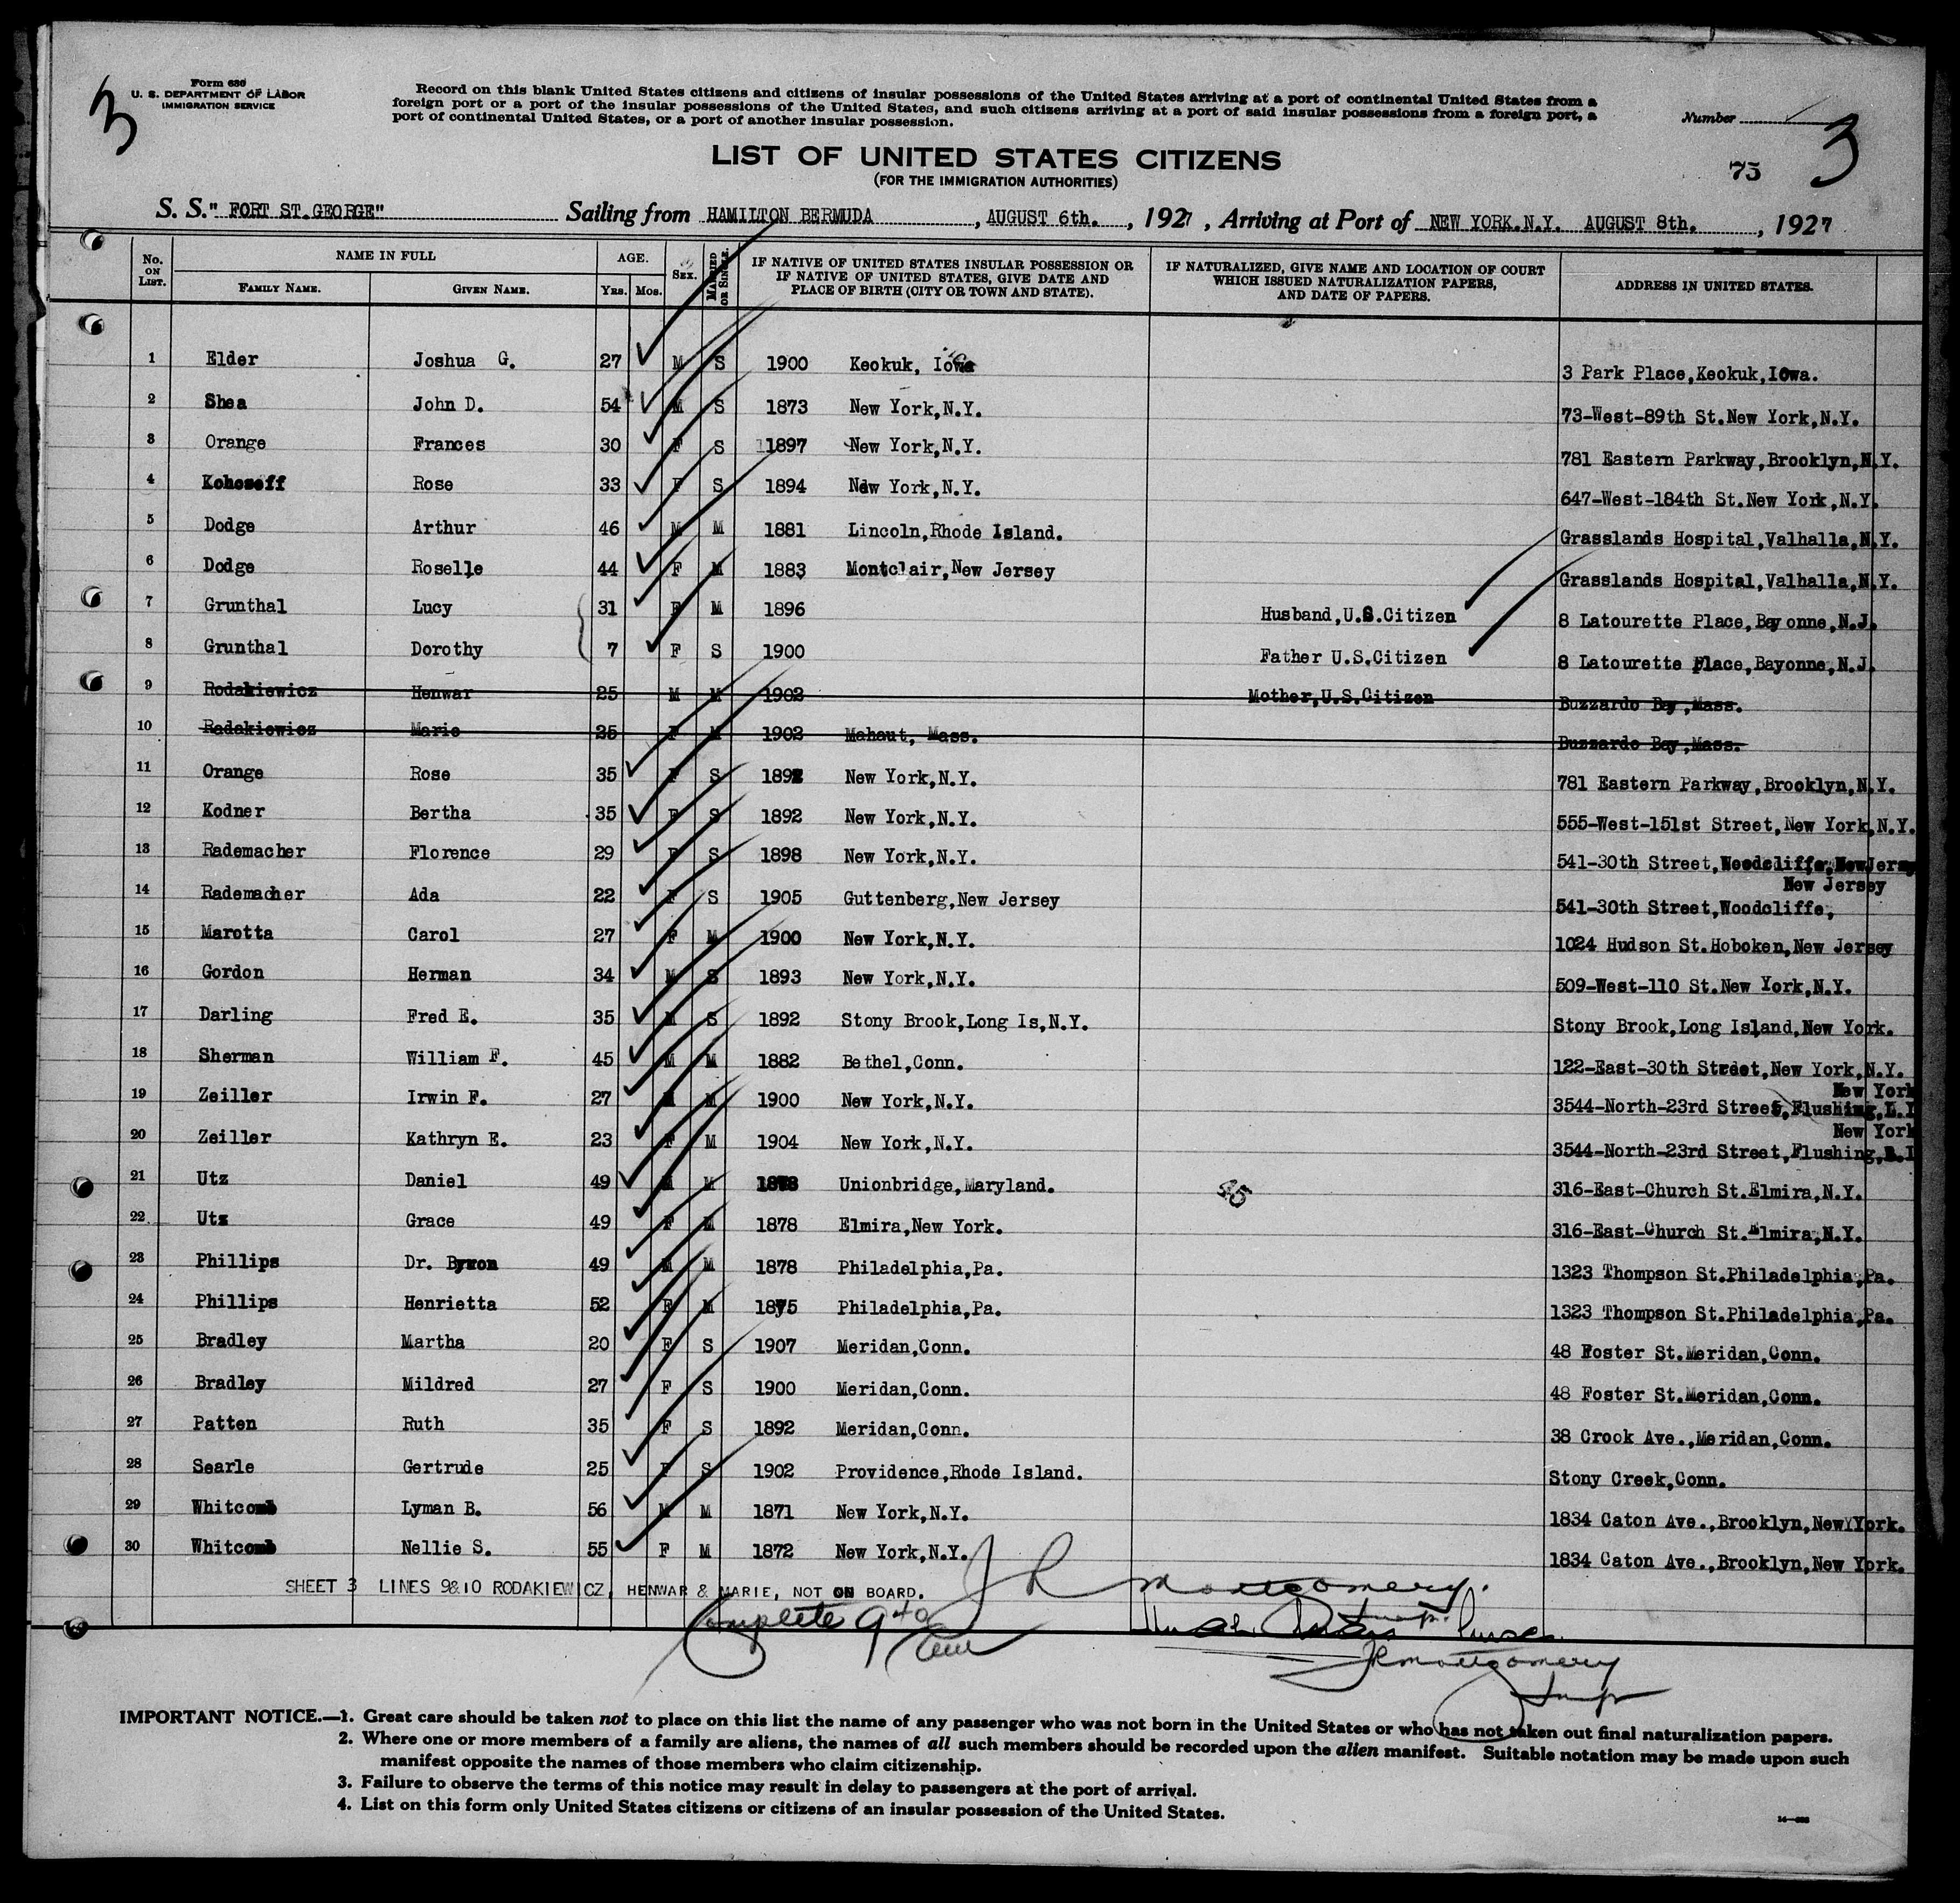 3
Form 630
U. S. DEPARTMENT OF LABOR
IMMIGRATION SERVICE
Record on this blank United States citizens and citizens of insular possessions of the United States arriving at a port of continental United States from a
foreign port or a port of the insular possessions of the United States, and such citizens arriving at a port of said insular possessions from a foreign port, a
port of continental United States, or a port of another insular possession.
Number
3
LIST OF UNITED STATES CITIZENS
(FOR THE IMMIGRATION AUTHORITIES)
75
S. S. " FORT ST.GEORGE" Sailing from HAMILTON BERMUDA , AUGUST 6th. , 1927 , Arriving at Port of NEW YORK.N.Y. AUGUST 8th. , 1927
No. ON LIST. NAME IN FULL AGE. SEX. MARRIED OR SINGLE. IF NATIVE OF UNITED STATES INSULAR POSSESSION OR IF NATIVE OF UNITED STATES, GIVE DATE AND PLACE OF BIRTH (CITY OR TOWN AND STATE). IF NATURALIZED, GIVE NAME AND LOCATION OF COURT WHICH ISSUED NATURALIZATION PAPERS, AND DATE OF PAPERS. ADDRESS IN UNITED STATES.
FAMILY NAME. GIVEN NAME. YRS. MOS.
1 Elder Joshua G. 27 M S 1900 Keokuk, Iowa 3 Park Place,Keokuk,Iowa.
2 Shea John D. 54 M S 1873 New York,N.Y. 73-West-89th St.New York,N.Y.
3 Orange Frances 30 F S 1897 New York,N.Y. 781 Eastern Parkway,Brooklyn,N.Y.
4 Rose 33 F S 1894 New York,N.Y. 647-West-184th St.New York,N.Y.
5 Dodge Arthur 46 M M 1881 Lincoln,Rhode Island. Grasslands Hospital,Valhalla,N.Y.
6 Dodge Roselle 44 F M 1883 Montclair,New Jersey Grasslands Hospital,Valhalla,N.Y.
7 Grunthal Lucy 31 F M 1896 Husband,U.S.Citizen 8 Latourette Place,Bayonne,N.J.
8 Grunthal Dorothy 7 F S 1900 Father U.S.Citizen 8 Latourette Place,Bayonne,N.J.
9 Rodakiewicz Henwar 25 M M 1902 Mother,U.S.Citizen Buzzardo Bay,Mass.
10 Radakiewicz Marie 25 F M 1902 Mahaut, Mass. Buzzardo Bay,Mass.
11 Orange Rose 35 F S 1892 New York,N.Y. 781 Eastern Parkway,Brooklyn,N.Y.
12 Kodner Bertha 35 F S 1892 New York,N.Y. 555-West-151st Street,New York,N.Y.
13 Rademacher Florence 29 F S 1898 New York,N.Y. 541-30th Street,Woodcliffe,NewJersey
New Jersey
14 Rademacher Ada 22 F S 1905 Guttenberg,New Jersey 541-30th Street,Woodcliffe,
15 Marotta Carol 27 F M 1900 New York,N.Y. 1024 Hudson St.Hoboken,New Jersey
16 Gordon Herman 34 M S 1893 New York,N.Y. 509-West-110 St.New York,N.Y.
17 Darling Fred E. 35 M S 1892 Stony Brook,Long Is,N.Y. Stony Brook,Long Island,New York.
18 Sherman William F. 45 M M 1882 Bethel,Conn. 122-East-30th Street,New York,N.Y.
New York
19 Zeiller Irwin F. 27 M M 1900 New York,N.Y. 3544-North-23rd Street,Flushing,L.I
New York
20 Zeiller Kathryn E. 23 F M 1904 New York,N.Y. 3544-North-23rd Street,Flushing,L.I
21 Utz Daniel 49 M M 1878 Unionbridge,Maryland. 45 316-East-Church St.Elmira,N.Y.
22 Utz Grace 49 F M 1878 Elmira,New York. 316-East-Church St.Elmira,N.Y.
23 Phillips Dr. Byron 49 M M 1878 Philadelphia,Pa. 1323 Thompson St.Philadelphia,Pa.
24 Phillips Henrietta 52 F M 1875 Philadelphia,Pa. 1323 Thompson St.Philadelphia,Pa.
25 Bradley Martha 20 F S 1907 Meridan,Conn. 48 Foster St.Meridan,Conn.
26 Bradley Mildred 27 F S 1900 Meridan,Conn. 48 Foster St.Meridan,Conn.
27 Patten Ruth 35 F S 1892 Meridan,Conn. 38 Crook Ave.,Meridan,Conn.
28 Searle Gertrude 25 F S 1902 Providence,Rhode Island. Stony Creek,Conn.
29 Whitcomb Lyman B. 56 M M 1871 New York,N.Y. 1834 Caton Ave.,Brooklyn,NewYYork.
30 Whitcomb Nellie S. 55 F M 1872 New York,N.Y. 1834 Caton Ave.,Brooklyn,New York.
SHEET 3 LINES 9&10 RODAKIEWICZ, HENWAR & MARIE, NOT ON BOARD.
J R Montgomery.
Complete
JRMontgomery
IMPORTANT NOTICE.—1. Great care should be taken not to place on this list the name of any passenger who was not born in the United States or who has not taken out final naturalization papers.
2. Where one or more members of a family are aliens, the names of all such members should be recorded upon the alien manifest. Suitable notation may be made upon such
manifest opposite the names of those members who claim citizenship.
3. Failure to observe the terms of this notice may result in delay to passengers at the port of arrival.
4. List on this form only United States citizens or citizens of an insular possession of the United States.